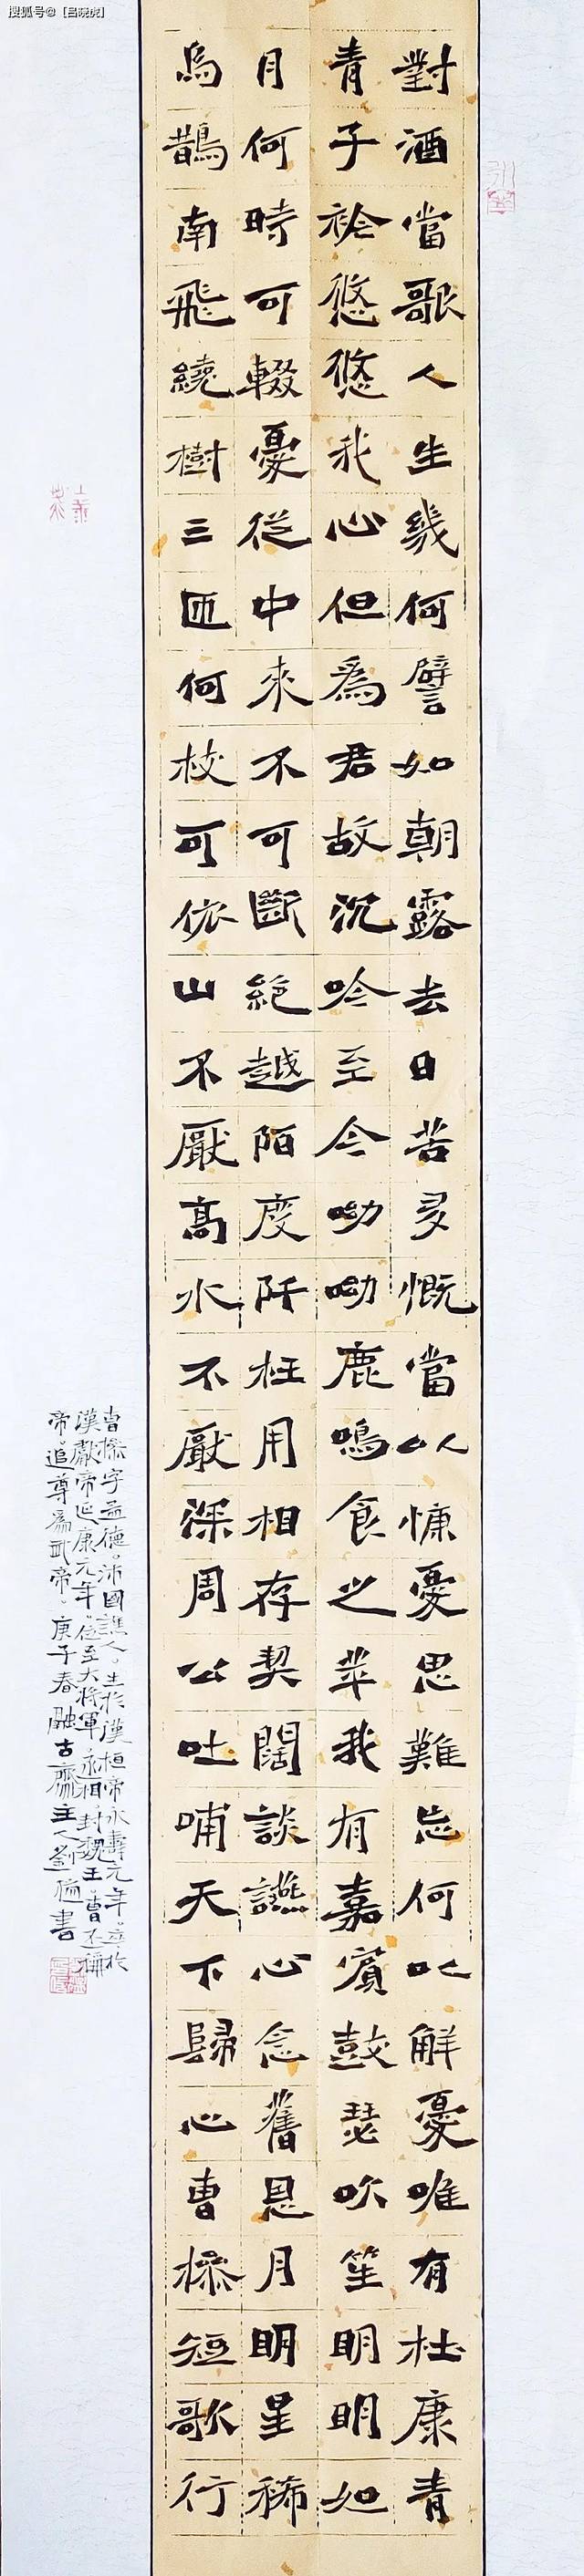 搜狐号@【吕晓虎】
對酒當歌人生幾何譬如朝露去日苦多慨當以慷憂思難忘何以解憂唯有杜康青
青子衿悠悠我心但為君故沉吟至今呦呦鹿鳴食之苹我有嘉賓鼓瑟吹笙明明如
月何時可輟憂從中來不可斷絕越陌度阡枉用相存契闊談讌心念舊恩月明星稀
烏鵲南飛繞樹三匝何枝可依山不厭高水不厭深周公吐哺天下歸心曹操短歌行
曹操字孟德沛國譙人生於漢桓帝永壽元年卒於
漢獻帝延康元年位至大將軍丞相封魏王曹丕稱
帝追尊為武帝庚子春融古齋主人劉書